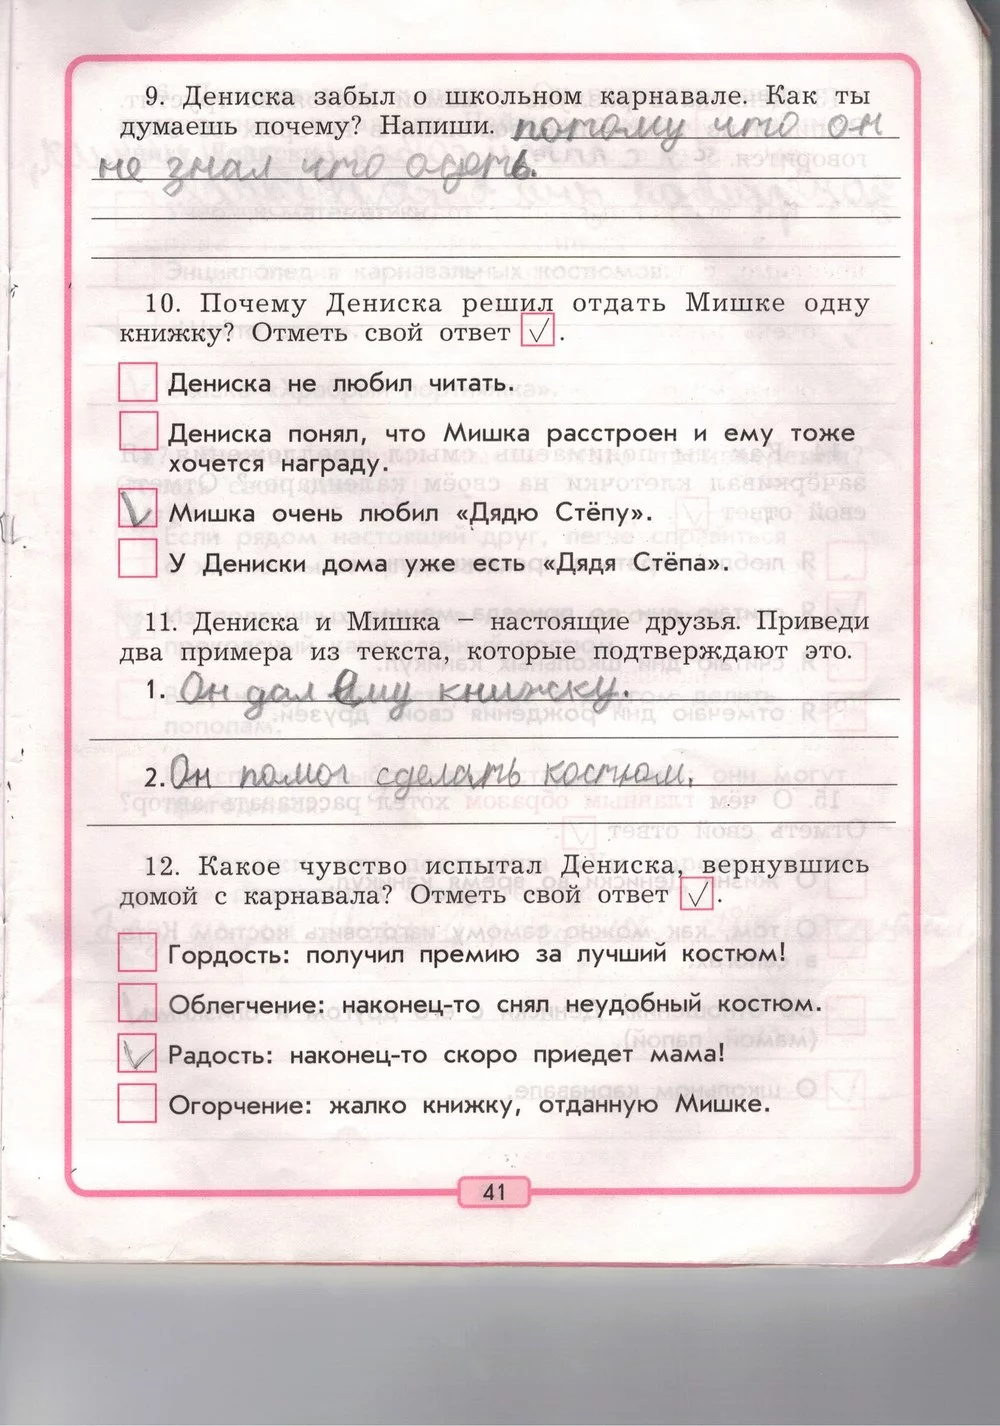 9. Дениска забыл о школьном карнавале. Как ты
думаешь почему? Напиши. потому что он
не знал что одеть.
10. Почему Дениска решил отдать Мишке одну
книжку? Отметь свой ответ ✓.
Дениска не любил читать.
Дениска понял, что Мишка расстроен и ему тоже
хочется награду.
✓ Мишка очень любил «Дядю Стёпу».
У Дениски дома уже есть «Дядя Стёпа».
11. Дениска и Мишка – настоящие друзья. Приведи
два примера из текста, которые подтверждают это.
1. Он дал Ему книжку.
2. Он помог сделать костюм.
12. Какое чувство испытал Дениска, вернувшись
домой с карнавала? Отметь свой ответ ✓.
Гордость: получил премию за лучший костюм!
Облегчение: наконец-то снял неудобный костюм.
✓ Радость: наконец-то скоро приедет мама!
Огорчение: жалко книжку, отданную Мишке.
41